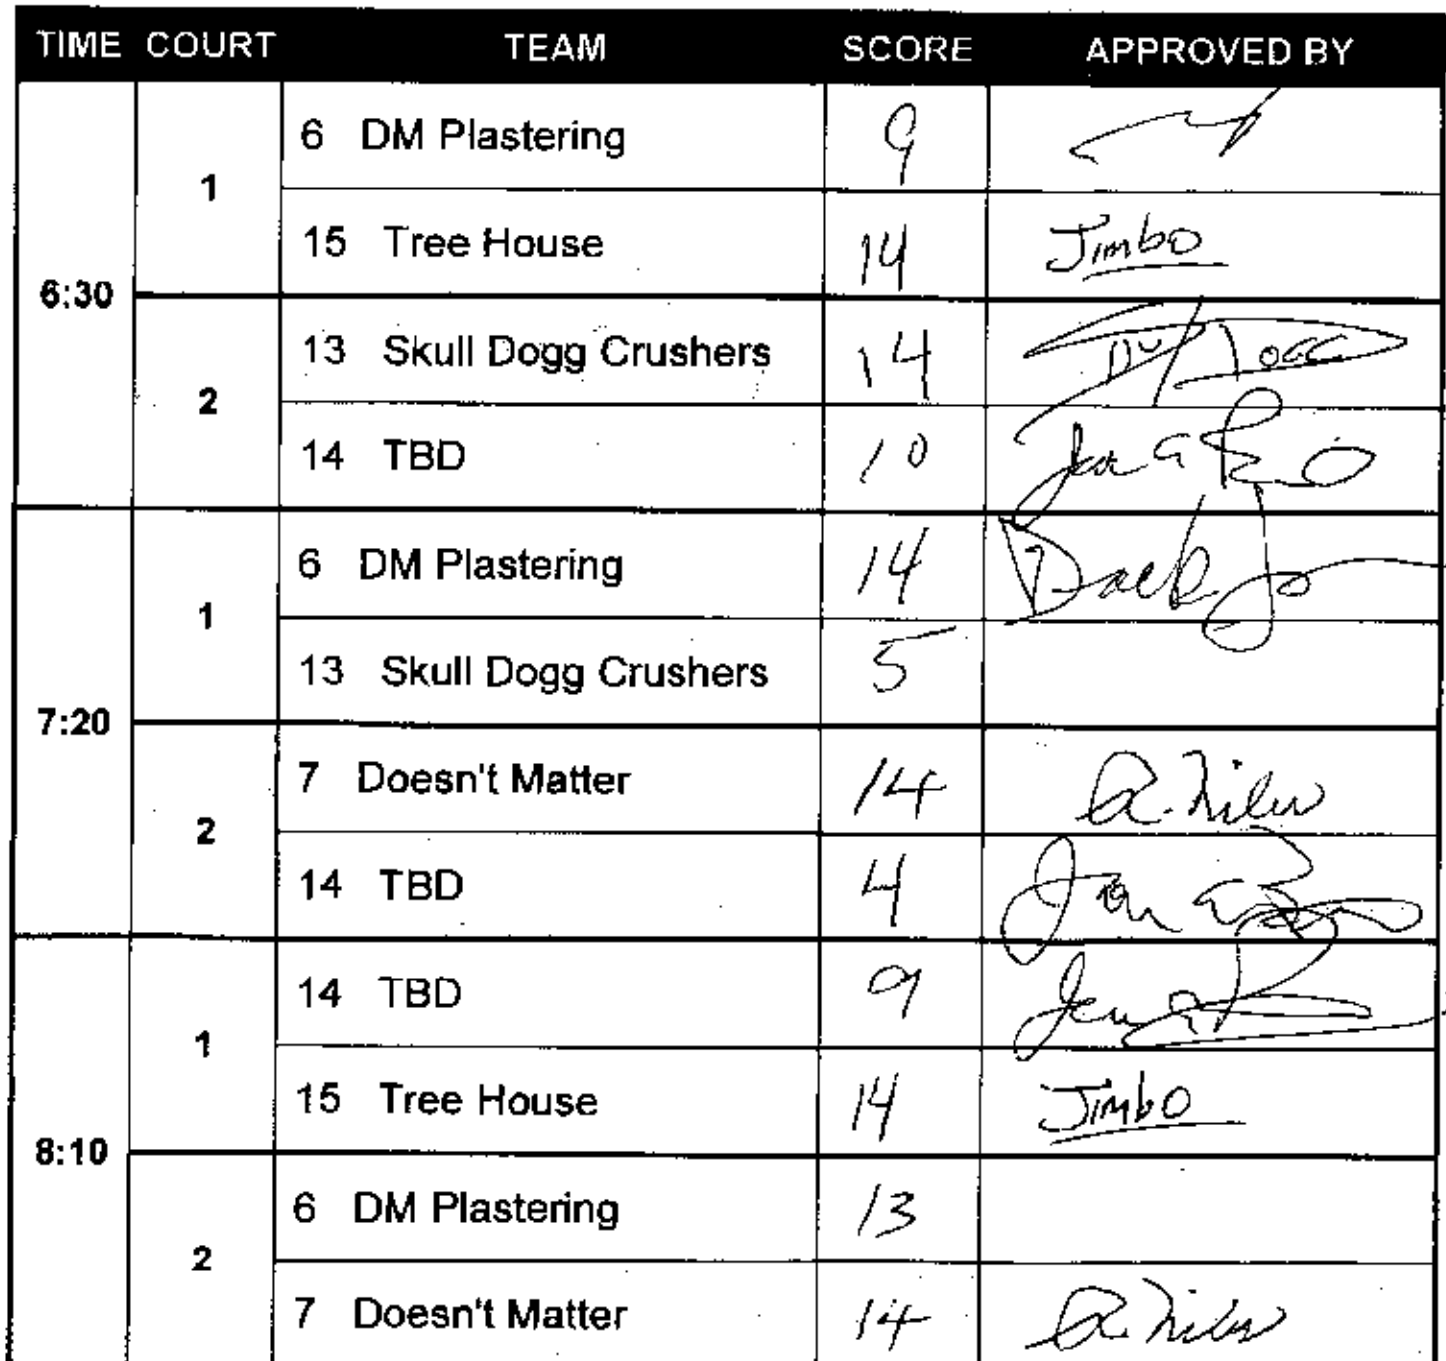 TIME COURT TEAM SCORE APPROVED BY
6:30
1
6 DM Plastering 9
15 Tree House 14 Jimbo
2
13 Skull Dogg Crushers 14
14 TBD 10
7:20
1
6 DM Plastering 14
13 Skull Dogg Crushers 5
2
7 Doesn't Matter 14
14 TBD 4
8:10
1
14 TBD 9
15 Tree House 14 Jimbo
2
6 DM Plastering 13
7 Doesn't Matter 14